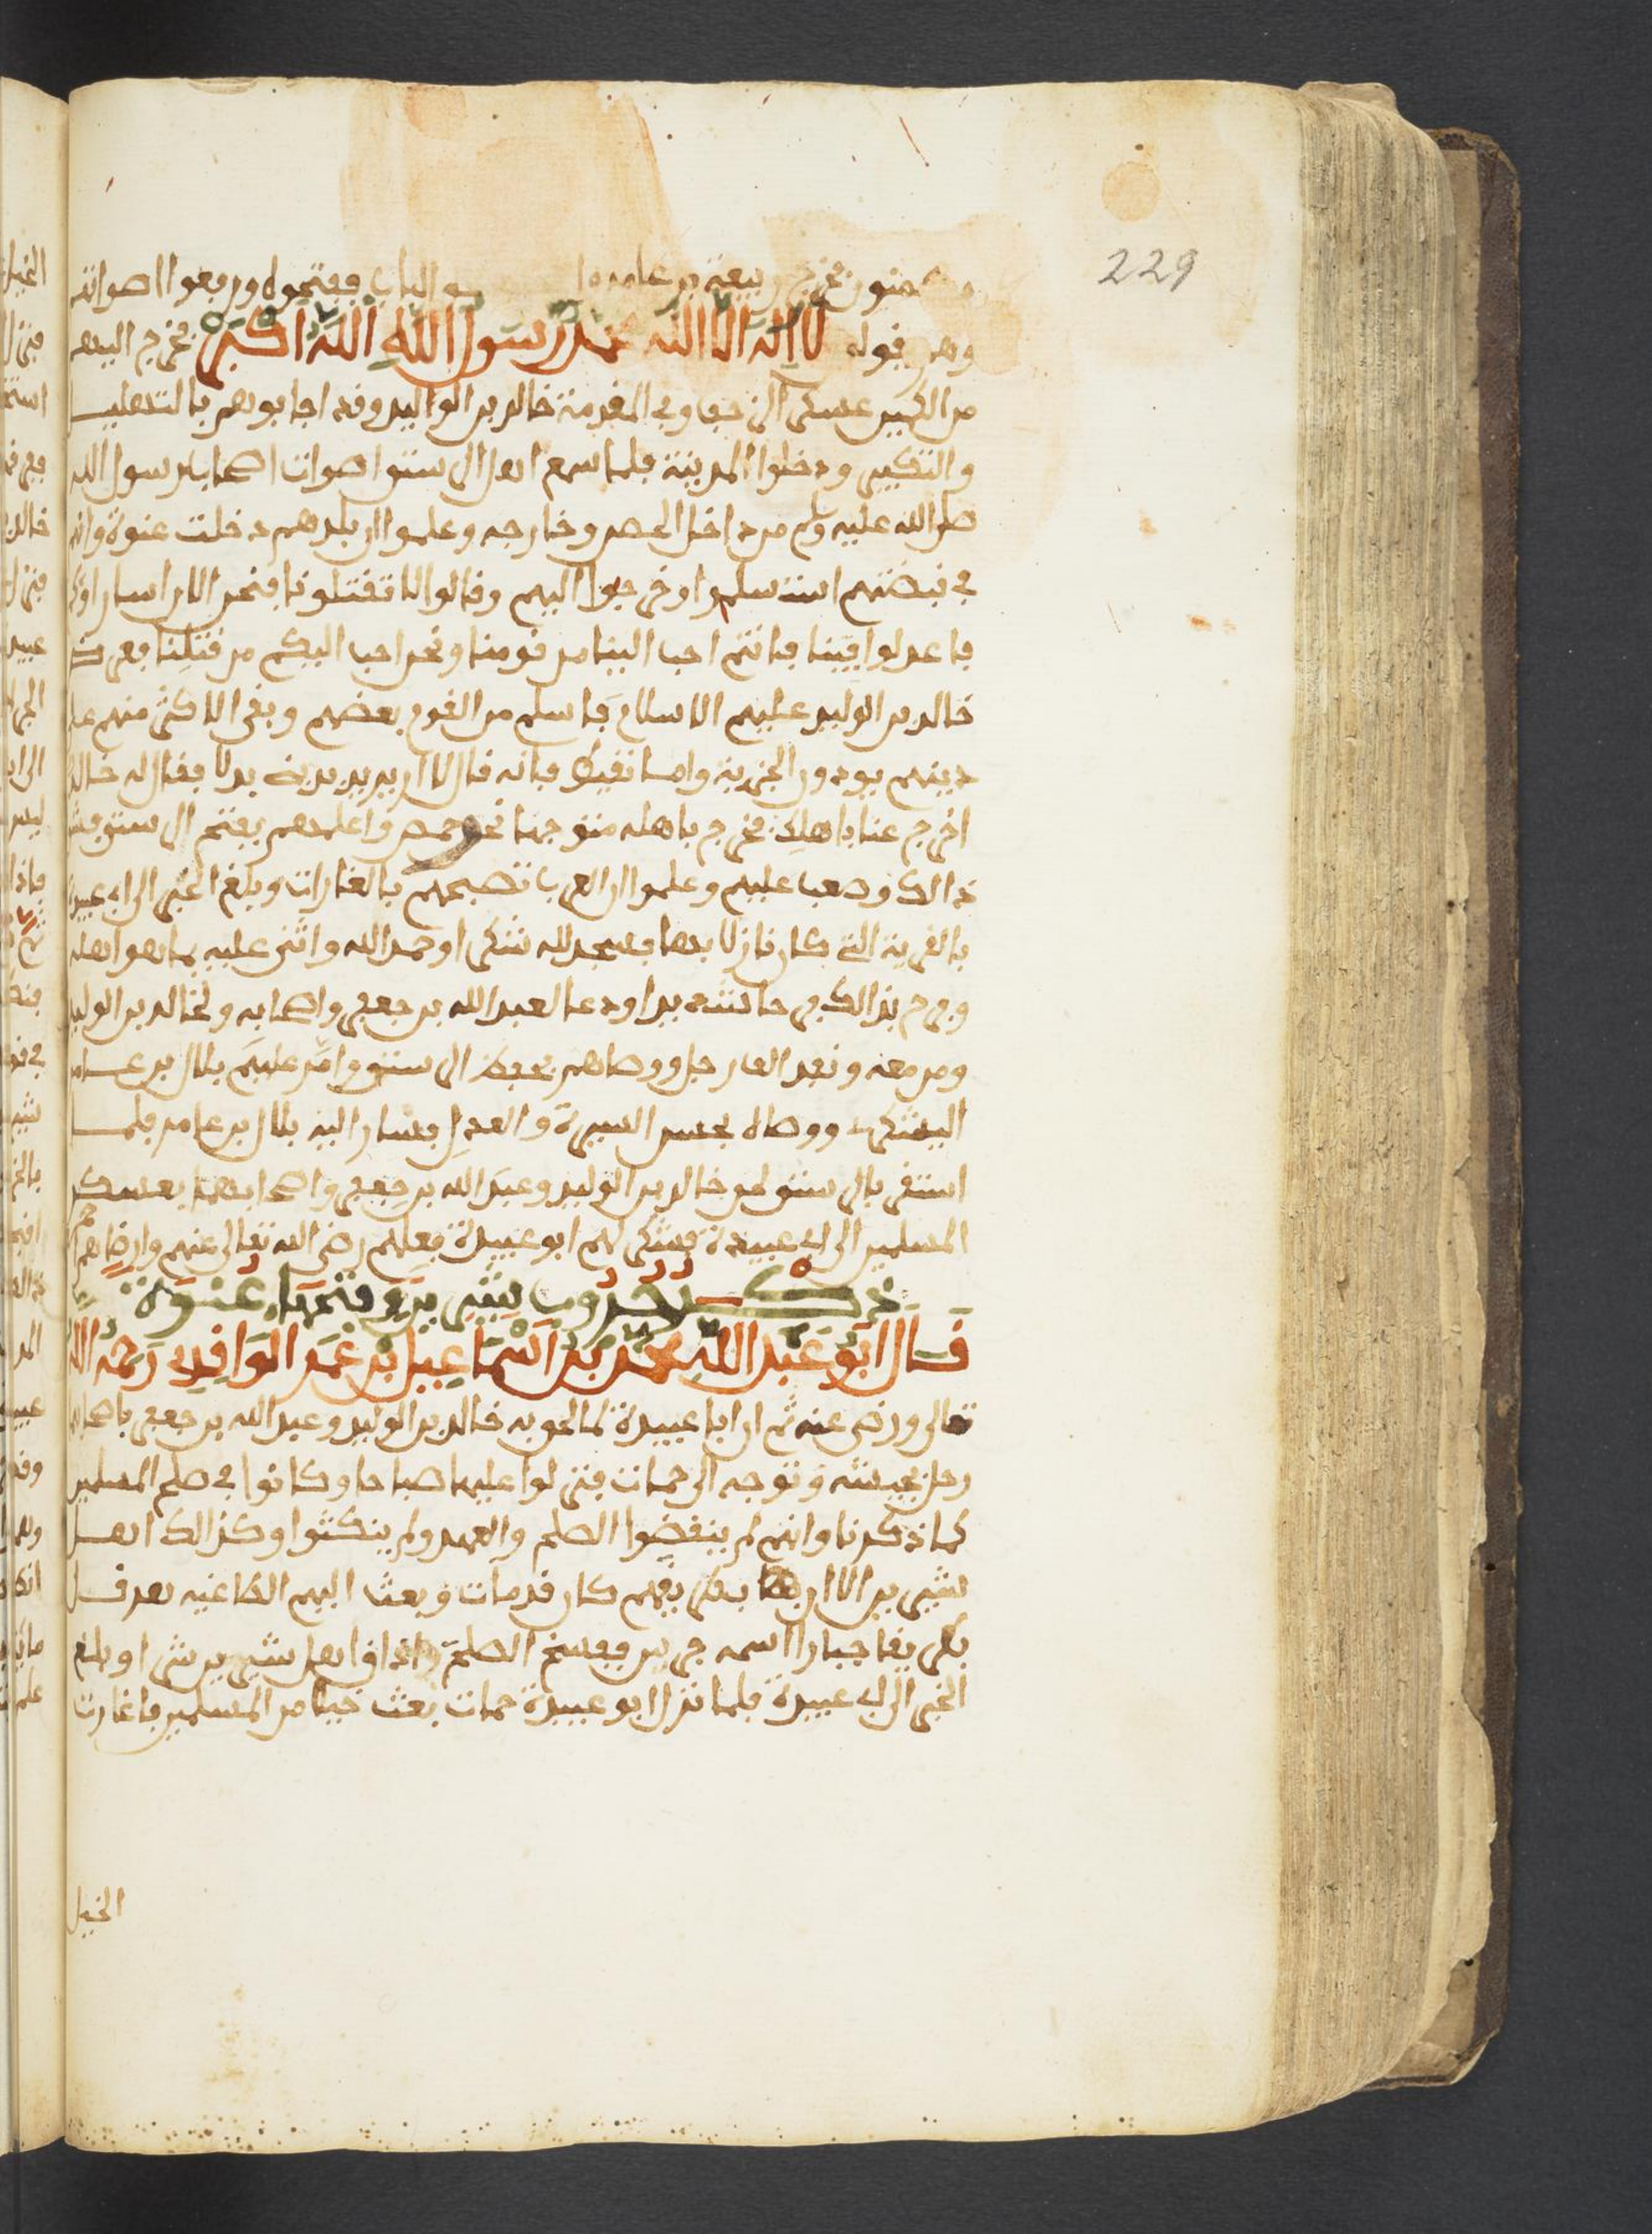 229
فخرج ربيعة بن عامر الى الباب ففتحوه ورفعوا اصواتهم
وهم يقولون لا اله الا الله محمد رسول الله الله اكبر فخرج اليهم
من الكمين عسكر الزحف وفي المقدمة خالد بن الواليد وقد اجابوهم بالتهليل
والتكبير ودخلوا المدينة فلما سمع اهل الرستن اصوات اصحاب رسول الله
صلى الله عليه وسلم من داخل الحصن وخارجه وعلموا ان بلدهم دخلت عنوة وانهم
في قبضتهم استسلموا وخرجوا اليهم وقالوا لا تقتلونا فنحن الان اسارا
فاعدلوا فينا فانتم احب الينا من قومنا ونحن احب اليكم من قتلنا فعرض
خالد بن الوليد عليهم الاسلام فاسلم من القوم بعضهم وبقى الاكثر منهم على
دينهم يودون الجزية واما نقيطا فانه قال لا اريد بديني بدلا فقال له خالد
اخرج عنا باهلك فخرج باهله متوجها نحو حمص واعلمهم بفتح الرستن فشق
ذالك وصعب عليهم وعلموا ان العرب تصبحهم بالغارات وبلغ الخبر الى ابي عبيدة
بالقرية التي كان نازلا بها فسجد لله شكرا وحمد الله واثنى عليه بما هو اهله
وفرح بذالك فرحا شديدا ودعا لعبد الله بن جعفر واصحابه ولخالد بن الوليد
ومن معه ونفد الف رجل ووصاهم بحفظ الرستن وامر عليهم بلال بن عامر
اليشكرى ووصاه بحسن السيرة والعدل فسار اليه بلال بن عامر فلما
استقر بالرستن لحق خالد بن الوليد وعبد الله بن جعفر واصحابهما بعسكر
المسلمين الى ابي عبيدة فشكر لهم ابو عبيدة فعلهم رضى الله تعالى عنهم وارضاهم
ذكر حروب شيزر وفتحها عنوة
قال ابو عبد الله محمد بن اسماعيل بن عمر الواقدي رحمه الله
تعالى ورضى عنه ثم ان ابا عبيدة لما لحق به خالد بن الوليد وعبد الله بن جعفر باصحابهما
رحل بجيشه وتوجه الى حمات فنزلوا عليها صباحا وكانوا في صلح المسلمين
كما ذكرنا وانهم لم ينقضوا الصلح والعهد ولم ينكثوا وكذالك اهل
شيزر الا ان بطريقهم كان قد مات وبعث اليهم الطاغيه هرقل
بطريقا جبارا اسمه جرير ففسخ الصلح واذاق اهل شيزر شرا وبلغ
الخبر الى ابي عبيدة فلما نزل ابو عبيدة حمات بعث خيلا من المسلمين فاغارت
الخيل